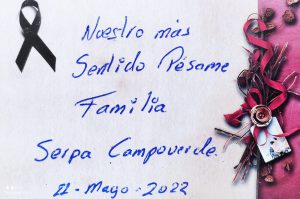 Nuestro más
Sentido Pésame
Familia
Serpa Campoverde.
21-Mayo-2022